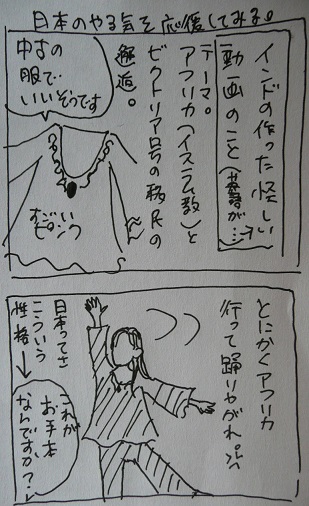 日本のやる気を応援してみる。
インドの作った怪しい
動画のこと(英語が…→
テーマ。
アフリカ(イスラム教)と
ビクトリア号の移民の
邂逅。
中古の
服で
いいそうです
すごい
ピンク
とにかくアフリカ
行って踊りやがれ。
日本ってさ
こういう
性格→
これが
お手本
なんですか?